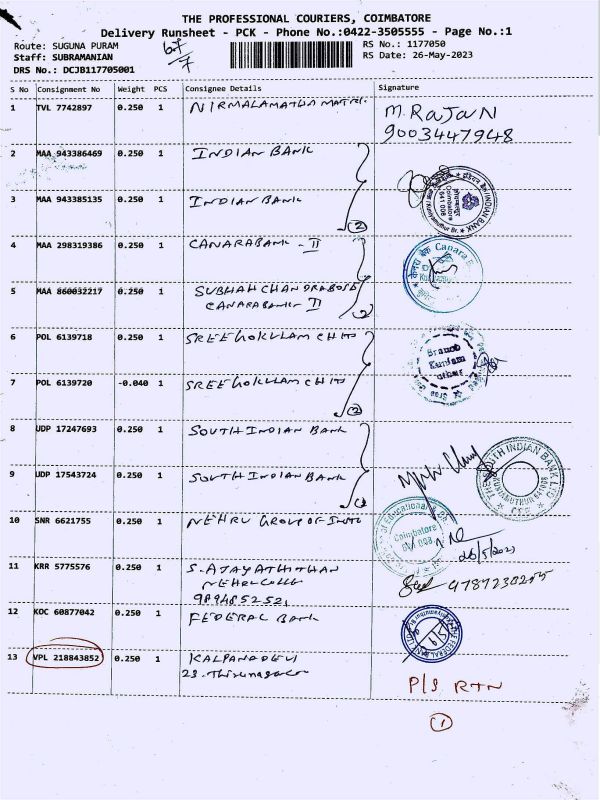 THE PROFESSIONAL COURIERS, COIMBATORE
Delivery Runsheet - PCK - Phone No.:0422-3505555 - Page No.:1
Route: SUGUNA PURAM
RS No.: 1177050
Staff: SUBRAMANIAN
RS Date: 26-May-2023
DRS No.: DCJB117705001
S No Consignment No Weight PCS Consignee Details Signature
1 TVL 7742897 0.250 1 NIRMALAMATHA MATRI.
M. RAJAN
9003447948
2 MAA 943386469 0.250 1 INDIAN BANK
3 MAA 943385135 0.250 1 INDIAN BANK
(2)
4 MAA 298319386 0.250 1 CANARABANK - II
5 MAA 860032217 0.250 1 SUBHAHCHANDRABOSE
CANARABANK II
6 POL 6139718 0.250 1 SREEGOKULAM CHITS
7 POL 6139720 -0.040 1 SREEGOKULAM CHITS
(2)
8 UDP 17247693 0.250 1 SOUTH INDIAN BANK
9 UDP 17543724 0.250 1 SOUTH INDIAN BANK
10 SNR 6621755 0.250 1 NEHRU GROUP OF INSTI
26/5/2023
11 KRR 5775576 0.250 1 S. AJAYATHITHAN
12 KOC 60877042 0.250 1 FEDERAL BANK
13 VPL 218843852 0.250 1 KALPANADEVI
23.
P/S RTN
(1)